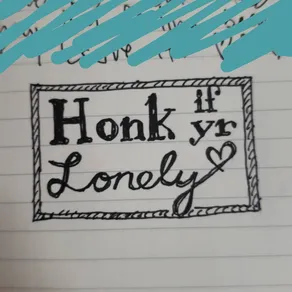 Honk if yr
Lonely